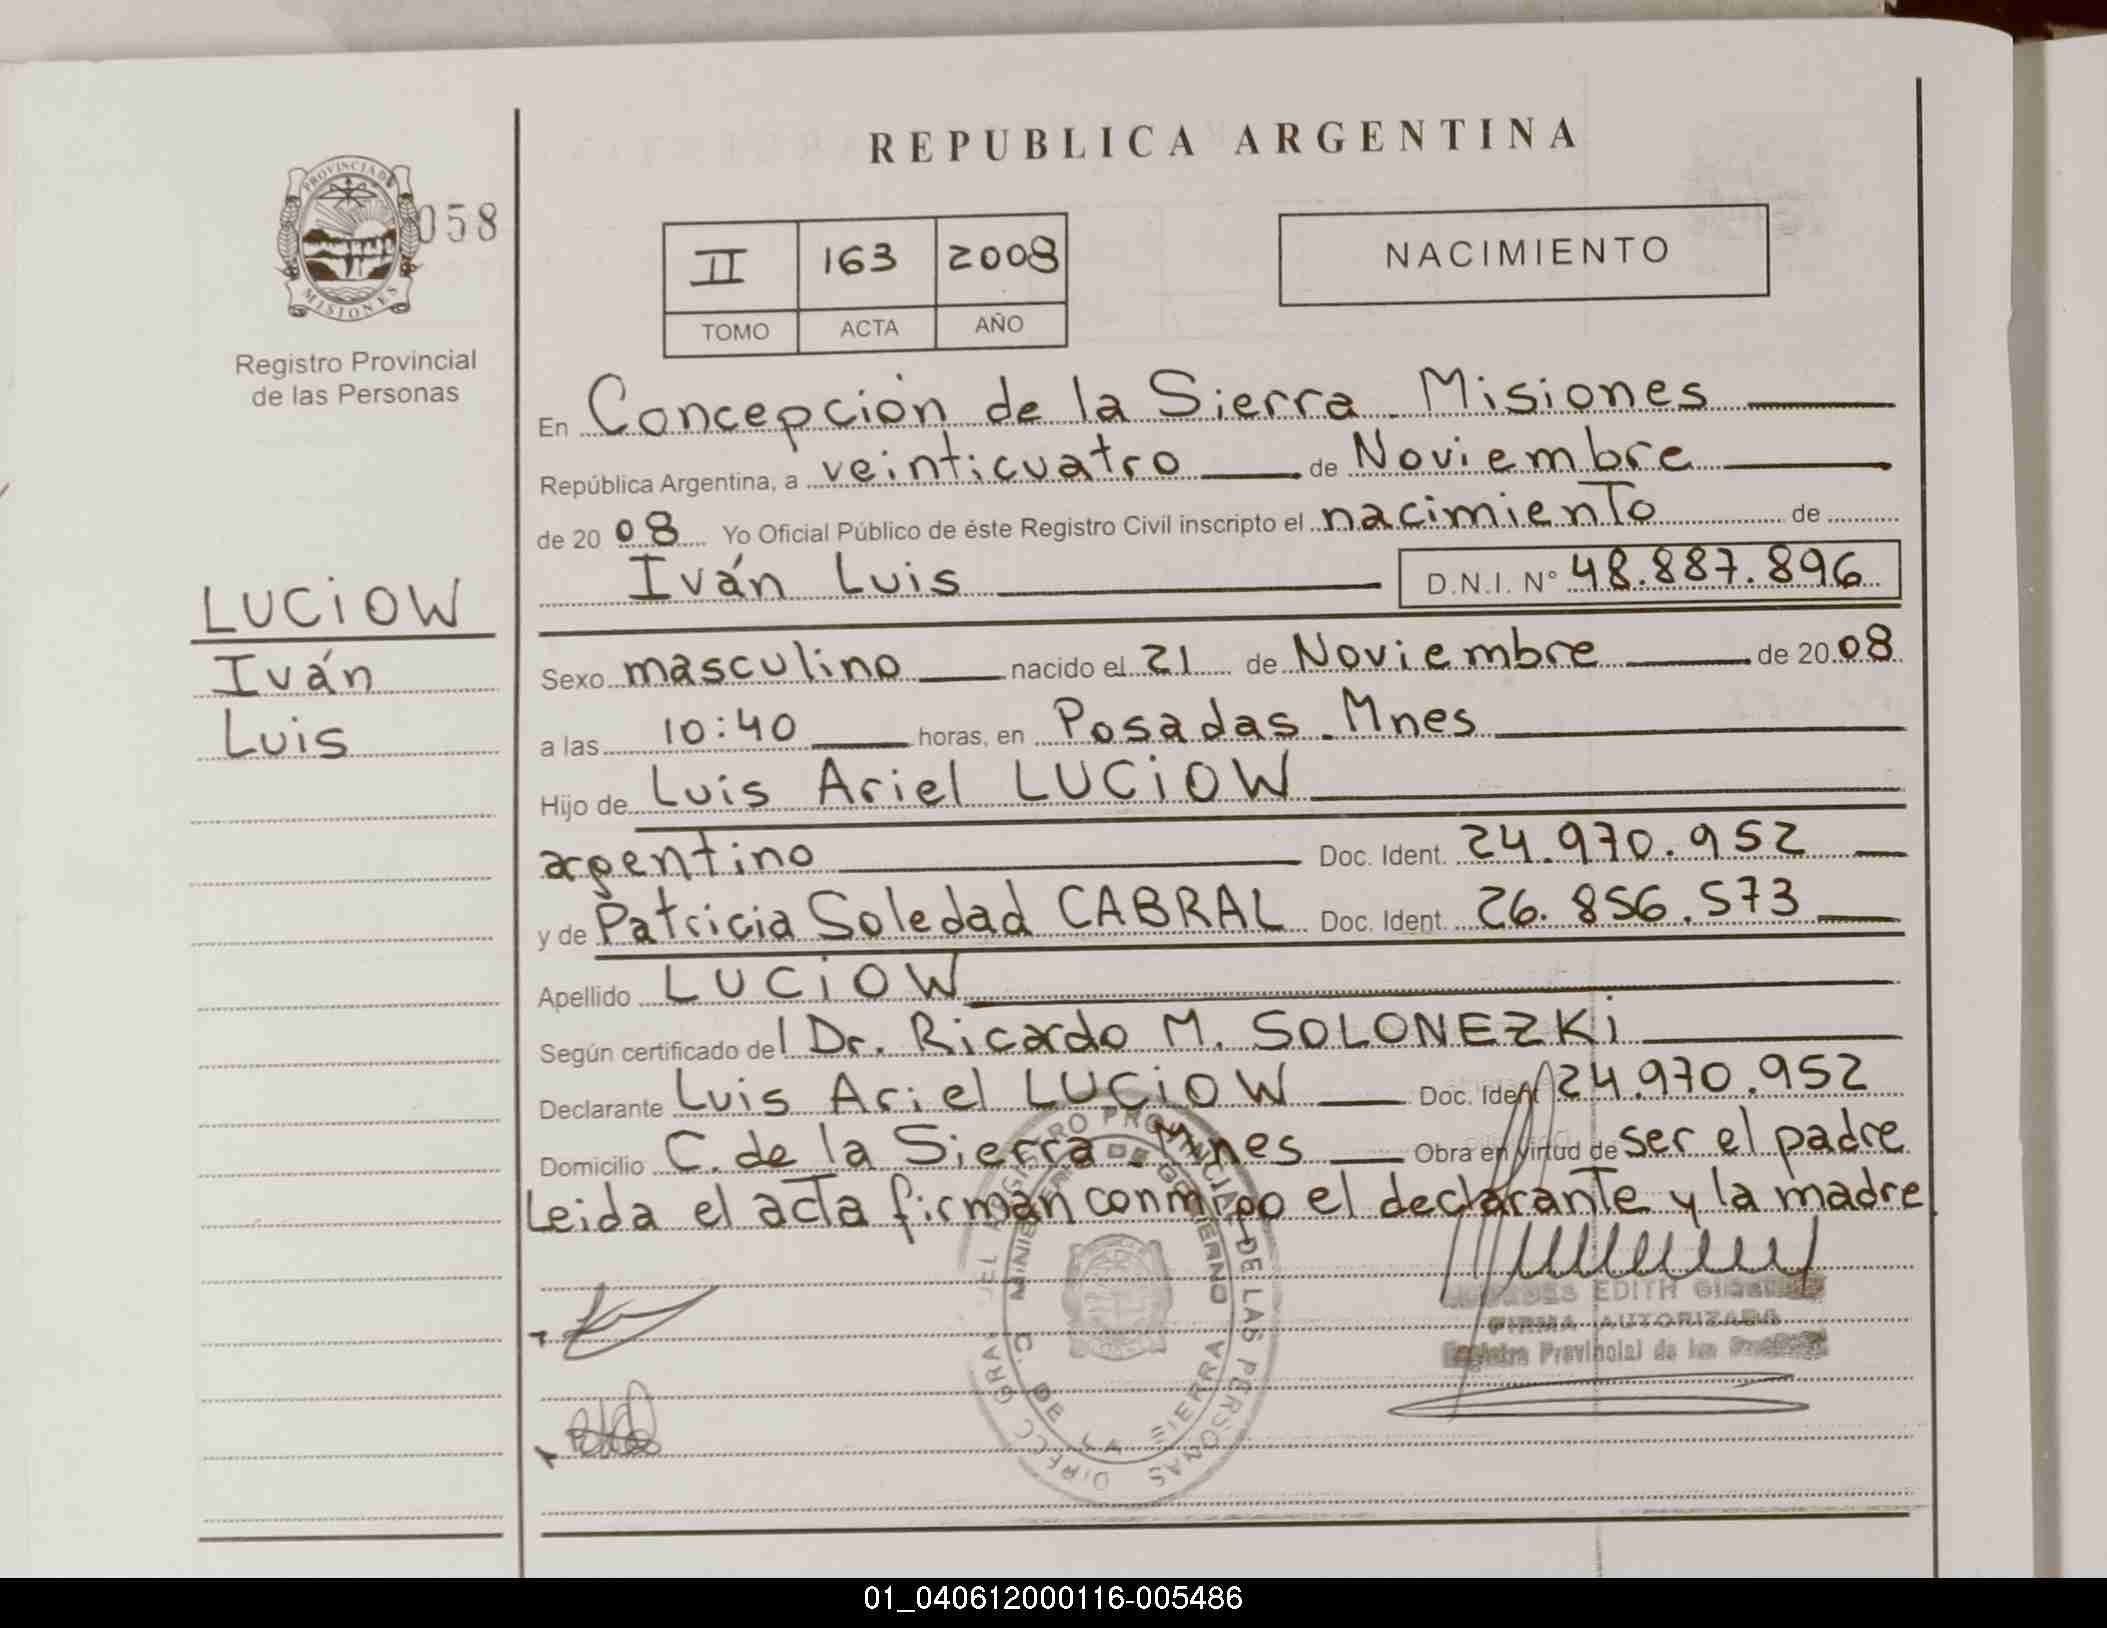 REPUBLICA ARGENTINA
PROVINCIA DE MISIONES
058
Registro Provincial
de las Personas
II 163 2008
TOMO ACTA AÑO
NACIMIENTO
En Concepción de la Sierra - Misiones
República Argentina, a veinticuatro de Noviembre
de 2008 Yo Oficial Público de éste Registro Civil inscripto el nacimiento de
Iván Luis D.N.I. N° 48.887.896
LUCiOW
Iván
Luis
Sexo masculino nacido el 21 de Noviembre de 2008
a las 10:40 horas, en Posadas - Mnes
Hijo de Luis Ariel LUCiOW
argentino Doc. Ident. 24.970.952
y de Patricia Soledad CABRAL Doc. Ident. 26.856.573
Apellido LUCiOW
Según certificado del Dr. Ricardo M. SOLONEZKi
Declarante Luis Ariel LUCiOW Doc. Ident 24.970.952
Domicilio C. de la Sierra - Mnes Obra en virtud de ser el padre
Leida el acta firman conmigo el declarante y la madre.
DIRECC GRAL DEL REGISTRO PROVINCIAL DE LAS PERSONAS
MINISTERIO DE GOBIERNO
C. DE LA SIERRA
EDITH
FIRMA AUTORIZADA
Registro Provincial de las
01_040612000116-005486